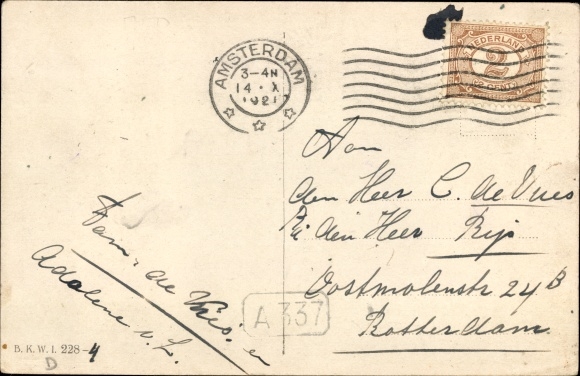 AMSTERDAM
3-4 N
14 · X
1921
NEDERLAND
2
2 CENT 2
Aan
den Heer C. de Vries
P/a den Heer Rijs
Oostmolenstr 24 B
Rotterdam
Fam. de Vries. en
Adolene v. L.
A 337
B. K. W. I. 228-4
D